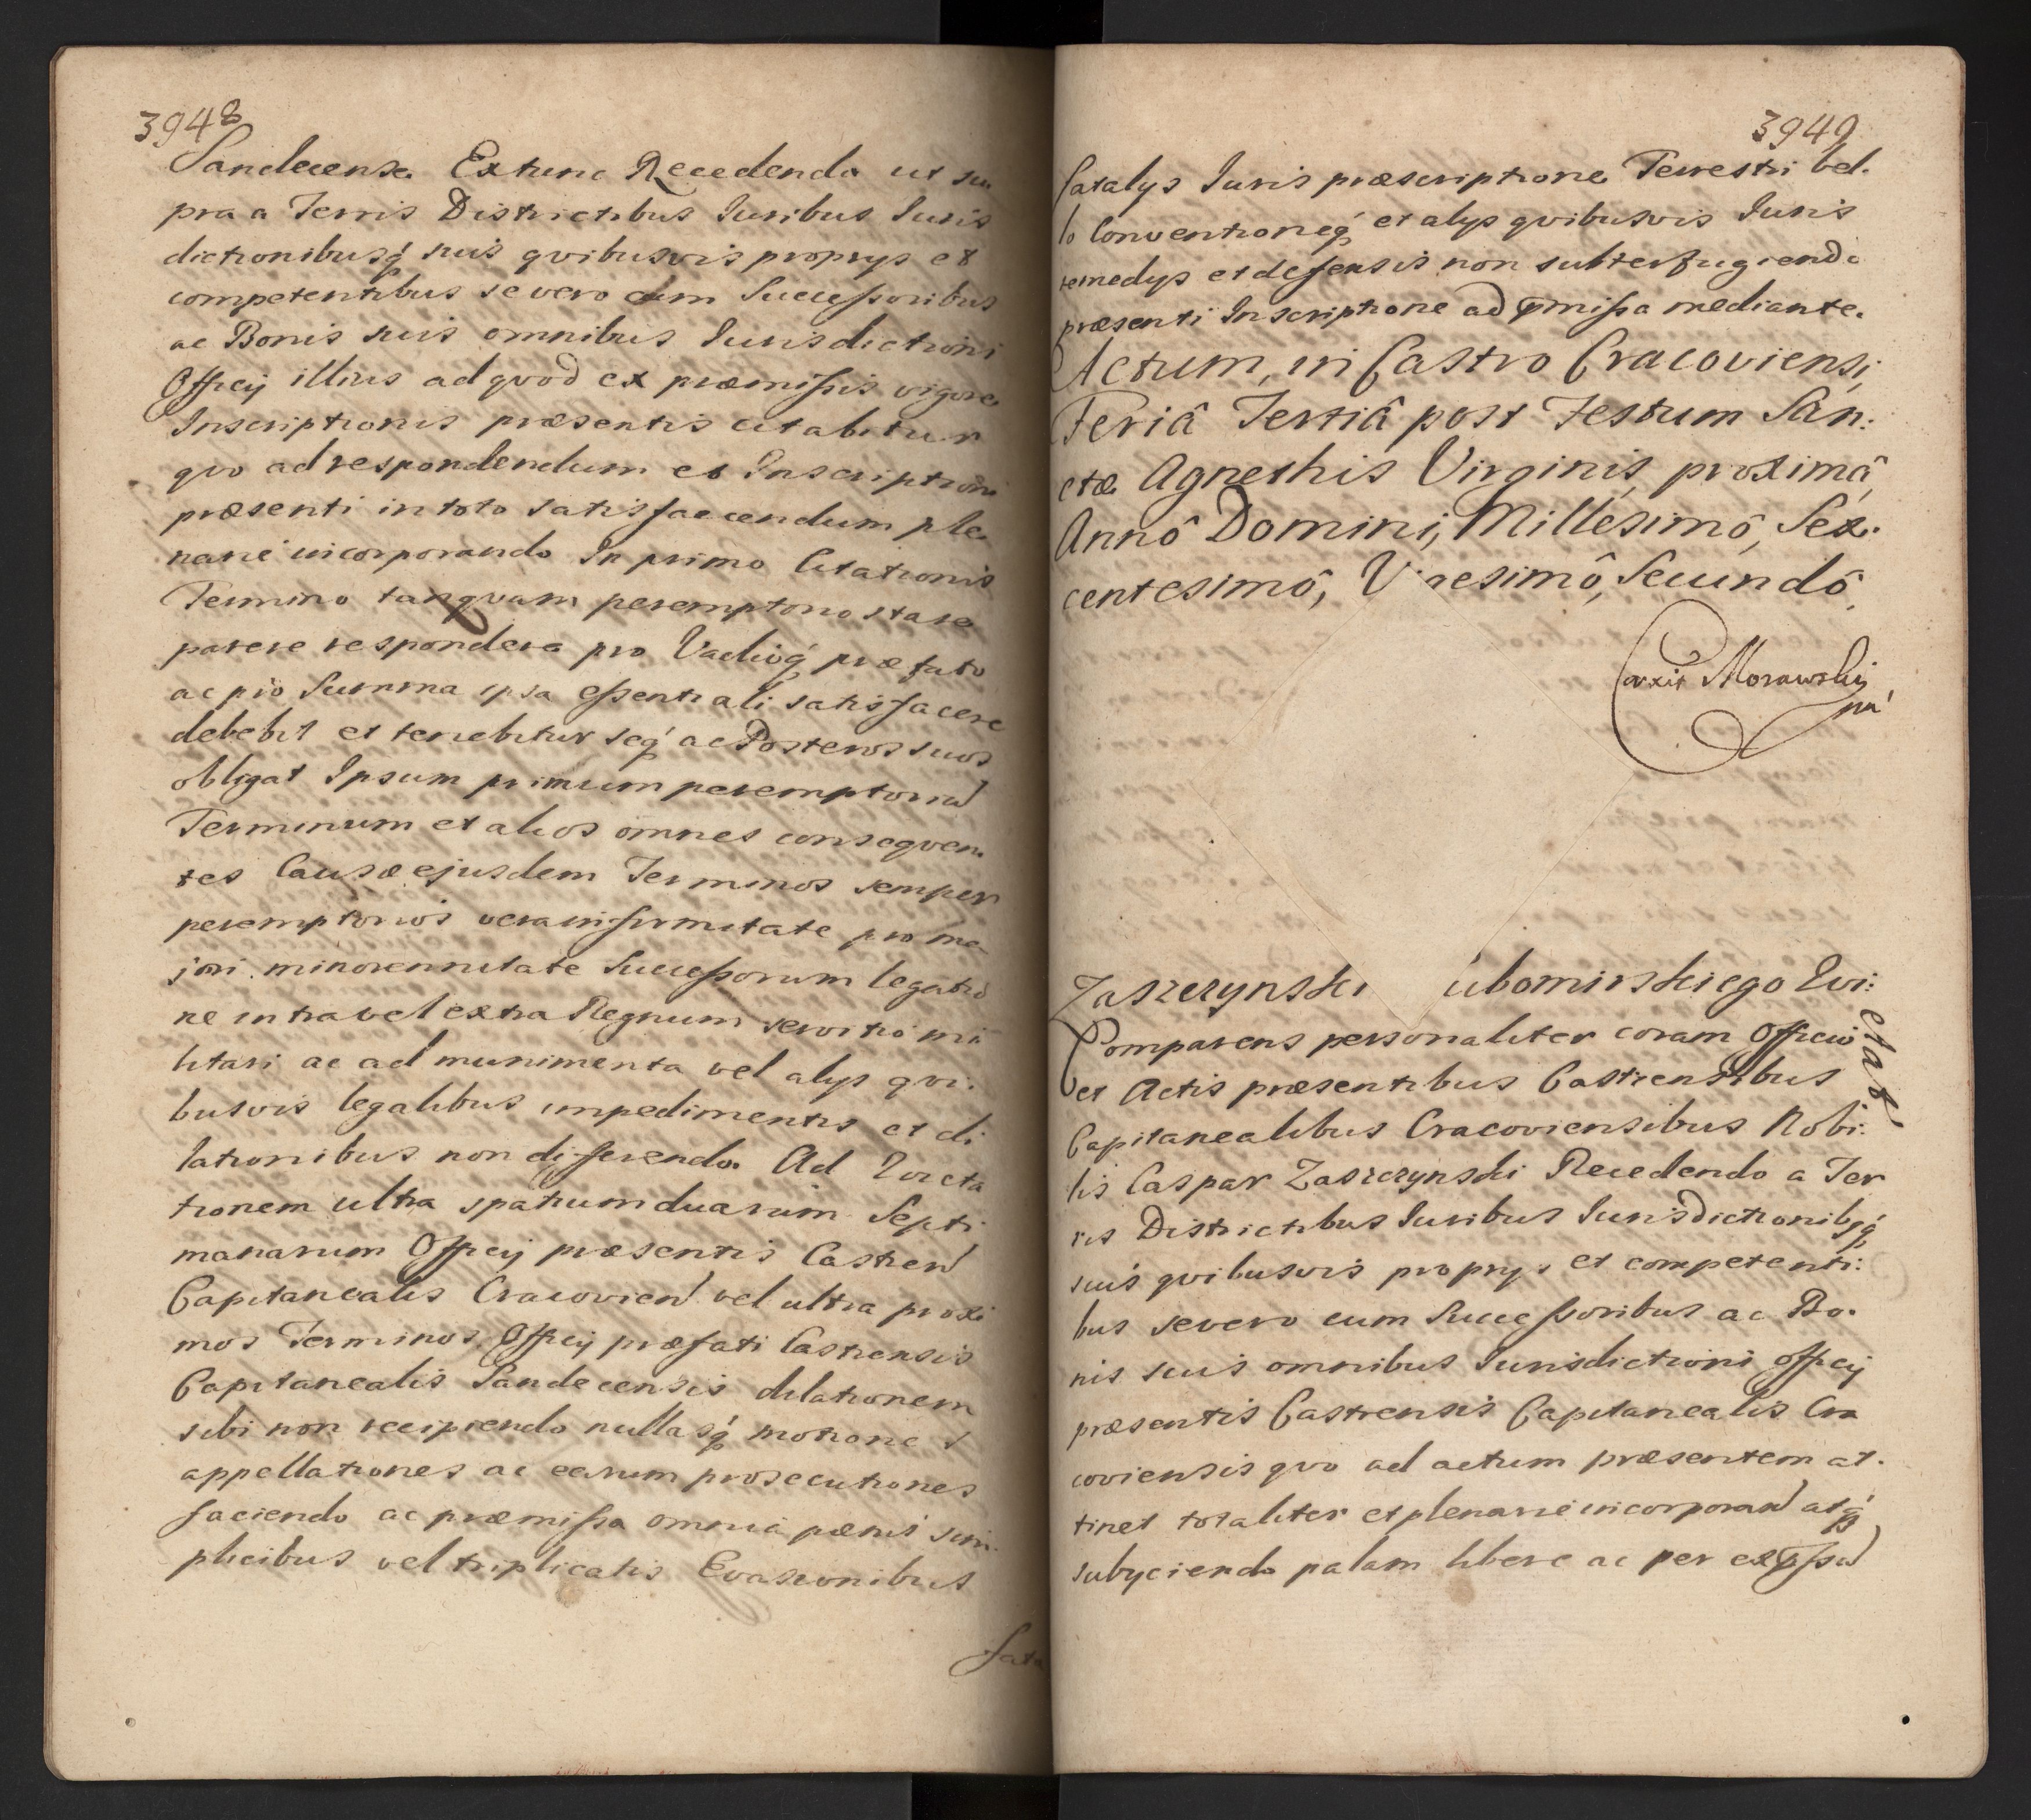 3948
Sandecense Extunc Recedendo ut su
pra a Terris Districtibus Iuribus Iuris
dictionibusq́ suis qvibusvis proprys et
competentibus se vero cum Successoribus
ac Bonis suis omnibus Iurisdictioni
Officij illius ad qvod ex præmissis vigore
Inscriptionis præsentis citabitur
qvo ad respondendum et Inscriptioni
præsenti in toto satisfaciendum ple
narié incorporando In primo Citationis
Termino tanqvam peremptorio stare
parere respondere pro Vadioq́ præfato
ac pro Summa ipsa essentiali satisfacere
debebit et tenebitur seq́ ac Posteros suos
obligat Ipsum primum peremptoriu
Terminum et alios omnes conseqven
tes Causæ ejusdem Terminos semper
peremptorios vera infirmitate pro ma
jori minorennitate Successorum legatio
ne intra vel extra Regnum servitio mi
litari ac ad munimenta vel alys qvi:
busvis legalibus impedimentis et di
lationibus non differendo. Ad Evicta
tionem ultra spatium duarum Septi
manarum Officij præsentis Castren
Capitanealis Cracovien vel ultra proxi
mos Terminos Officij præfati Castrensis
Capitanealis Sandecensis dilationem
sibi non recipiendo nullasq́ motiones
appellationes ac earum prosecutiones
faciendo ac præmissa omnia pænis sim
plicibus vel triplicatis Evasionibus
fata
3949
fatalys Iuris præscriptione Terrestri bel.
lo Conventioneq́ et alys qvibusvis Iuris
remedys et defensis non subterfugiendo
præsenti Inscriptione ad pmissa mediante.
Actum, in Castro Cracoviensi,
Feriâ Tertiâ post Festum San:
ctæ Agnethis Virginis, proximâ,
Annô Domini, Millesimô, Sex.
centesimô, V esimô, Secundô,
Corxit Morawskij
Zaszczynski ubomirskiego Qvi:
etat
Comparens personaliter coram Officio
et Actis præsentibus Castrensibus
Capitanealibus Cracoviensibus Nobi:
lis Caspar Zaszczynski Recedendo a Ter
ris Districtibus Iuribus Iurisdictionibq́
suis qvibusvis proprys et competenti:
bus se vero cum Successoribus ac Bo.
nis suis omnibus Iurisdictioni officij
præsentis Castrensis Capitanealis Cra
coviensis qvo ad actum præsentem at.
tinet totaliter et plenarie incorporan atq́
subyciendo palam libere ac per expssu